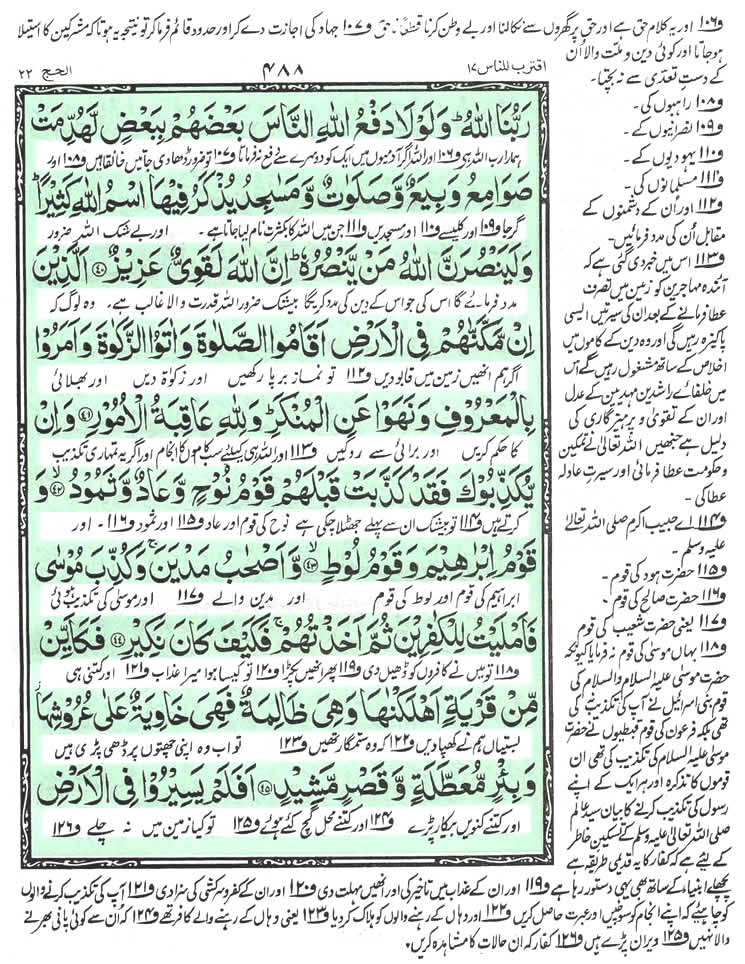 و۱۰۶ اور یہ کلام حق ہے اور حق پر گھروں سے نکالنا اور بے وطن کرنا قطعًا ناحق و۱۰۷ جہاد کی اجازت دے کر اور حدود قائم فرما کر تو نتیجہ یہ ہوتا کہ مشرکین کا استیلا
ہوجاتا اور کوئی دین و ملت والا اُن
کے دستِ تعدّی سے نہ بچتا۔
و۱۰۸ راہبوں کی۔
و۱۰۹ نصرانیوں کے۔
و۱۱۰ یہودیوں کے۔
و۱۱۱ مسلمانوں کی۔
و۱۱۲ اور اُن کے دشمنوں کے
مقابل اُن کی مدد فرمائیں۔
و۱۱۳ اس میں خبر دی گئی ہے کہ
آئندہ مہاجرین کو زمین میں تصرف
عطا فرمانے کے بعد ان کی سیرتیں ایسی
پاکیزہ رہیں گی اور وہ دین کے کاموں میں
اخلاص کے ساتھ مشغول رہیں گے اس
میں خلفائے راشدین مہدیین کے عدل
اور ان کے تقویٰ و پرہیزگاری کی
دلیل ہے جنھیں اللہ تعالیٰ نے تمکین
و حکومت عطا فرمائی اور سیرتِ عادلہ
عطا کی۔
و۱۱۴ اے حبیب اکرم صلی اللہ تعالیٰ
علیہ وسلم۔
و۱۱۵ حضرت ہود کی قوم۔
و۱۱۶ حضرت صالح کی قوم۔
و۱۱۷ یعنی حضرت شعیب کی قوم
و۱۱۸ یہاں موسیٰ کی قوم نہ فرمایا کیونکہ
حضرت موسیٰ علیہ الصلوٰۃ والسلام کی
قوم بنی اسرائیل نے آپ کی تکذیب نہ کی
تھی بلکہ فرعون کی قوم قبطیوں نے حضرت
موسیٰ علیہ السلام کی تکذیب کی تھی ان
قوموں کا تذکرہ اور ہر ایک کے اپنے
رسول کی تکذیب کرنے کا بیان سید عالم
صلی اللہ تعالیٰ علیہ وسلم کے تسکین خاطر
کے لیے ہے کہ کفار کا یہ قدیمی طریقہ ہے
اقترب للناس ۱۷ ۴۸۸ الحج ۲۲
رَبُّنَا اللّٰهُ ؕ وَلَوْلَا دَفْعُ اللّٰهِ النَّاسَ بَعْضَهُمْ بِبَعْضٍ لَّهُدِّمَتْ
ہمارا رب اللہ ہے و۱۰۶ اور اللہ اگر آدمیوں میں ایک کو دوسرے سے دفع نہ فرماتا و۱۰۷ تو ضرور ڈھا دی جاتیں خانقاہیں و۱۰۸ اور
صَوَامِعُ وَبِيَعٌ وَّصَلَوٰتٌ وَّمَسٰجِدُ يُذْكَرُ فِيْهَا اسْمُ اللّٰهِ كَثِيْرًا ؕ
گرجا و۱۰۹ اور کلیسے و۱۱۰ اور مسجدیں و۱۱۱ جن میں اللہ کا بکثرت نام لیا جاتا ہے۔ اور بے شک اللہ ضرور
وَلَيَنْصُرَنَّ اللّٰهُ مَنْ يَّنْصُرُهٗ ؕ اِنَّ اللّٰهَ لَقَوِيٌّ عَزِيْزٌ ﴿۴۰﴾ اَلَّذِيْنَ
مدد فرمائے گا اس کی جو اس کے دین کی مدد کریگا بیشک ضرور اللہ قدرت والا غالب ہے۔ وہ لوگ کہ
اِنْ مَّكَّنّٰهُمْ فِي الْاَرْضِ اَقَامُوا الصَّلٰوةَ وَاٰتَوُا الزَّكٰوةَ وَاَمَرُوْا
اگر ہم انھیں زمین میں قابو دیں و۱۱۲ تو نماز برپا رکھیں اور زکوٰۃ دیں اور بھلائی
بِالْمَعْرُوْفِ وَنَهَوْا عَنِ الْمُنْكَرِ ؕ وَلِلّٰهِ عَاقِبَةُ الْاُمُوْرِ ﴿۴۱﴾ وَاِنْ
کا حکم کریں اور برائی سے روکیں و۱۱۳ اور اللہ ہی کیلئے سب کاموں کا انجام اور اگر یہ تمہاری تکذیب
يُّكَذِّبُوْكَ فَقَدْ كَذَّبَتْ قَبْلَهُمْ قَوْمُ نُوْحٍ وَّعَادٌ وَّثَمُوْدُ ﴿۴۲﴾ وَ
کرتے ہیں و۱۱۴ تو بیشک ان سے پہلے جھٹلا چکی ہے نوح کی قوم اور عاد و۱۱۵ اور ثمود و۱۱۶۔ اور
قَوْمُ اِبْرٰهِيْمَ وَقَوْمُ لُوْطٍ ﴿۴۳﴾ وَّاَصْحٰبُ مَدْيَنَ ۚ وَكُذِّبَ مُوْسٰى
ابراہیم کی قوم اور لوط کی قوم اور مدین والے و۱۱۷ اور موسیٰ کی تکذیب ہوئی
فَاَمْلَيْتُ لِلْكٰفِرِيْنَ ثُمَّ اَخَذْتُهُمْ ۚ فَكَيْفَ كَانَ نَكِيْرِ ﴿۴۴﴾ فَكَاَيِّنْ
و۱۱۸ تو میں نے کافروں کو ڈھیل دی و۱۱۹ پھر انھیں پکڑا و۱۲۰ تو کیسا ہوا میرا عذاب و۱۲۱ اور کتنی ہی
مِّنْ قَرْيَةٍ اَهْلَكْنٰهَا وَهِيَ ظَالِمَةٌ فَهِيَ خَاوِيَةٌ عَلٰى عُرُوْشِهَا
بستیاں ہم نے کھپا دیں و۱۲۲ کہ وہ ستمگار تھیں و۱۲۳ تو اب وہ اپنی چھتوں پر ڈھی پڑی ہیں
وَبِئْرٍ مُّعَطَّلَةٍ وَّقَصْرٍ مَّشِيْدٍ ﴿۴۵﴾ اَفَلَمْ يَسِيْرُوْا فِي الْاَرْضِ
اور کتنے کنویں بیکار پڑے و۱۲۴ اور کتنے محل گچ کئے ہوئے و۱۲۵ تو کیا زمین میں نہ چلے و۱۲۶
پچھلے انبیاء کے ساتھ بھی یہی دستور رہا ہے و۱۱۹ اور ان کے عذاب میں تاخیر کی اور انھیں مہلت دی و۱۲۰ اور ان کے کفر و سرکشی کی سزا دی و۱۲۱ آپ کی تکذیب کرنے والوں
کو چاہیئے کہ اپنے انجام کو سوچیں اور عبرت حاصل کریں و۱۲۲ اور وہاں کے رہنے والوں کو ہلاک کردیا و۱۲۳ یعنی وہاں کے رہنے والے کافر تھے و۱۲۴ کہ ان سے کوئی پانی بھرنے
والا نہیں و۱۲۵ ویران پڑے ہیں و۱۲۶ کفار کہ ان حالات کا مشاہدہ کریں۔